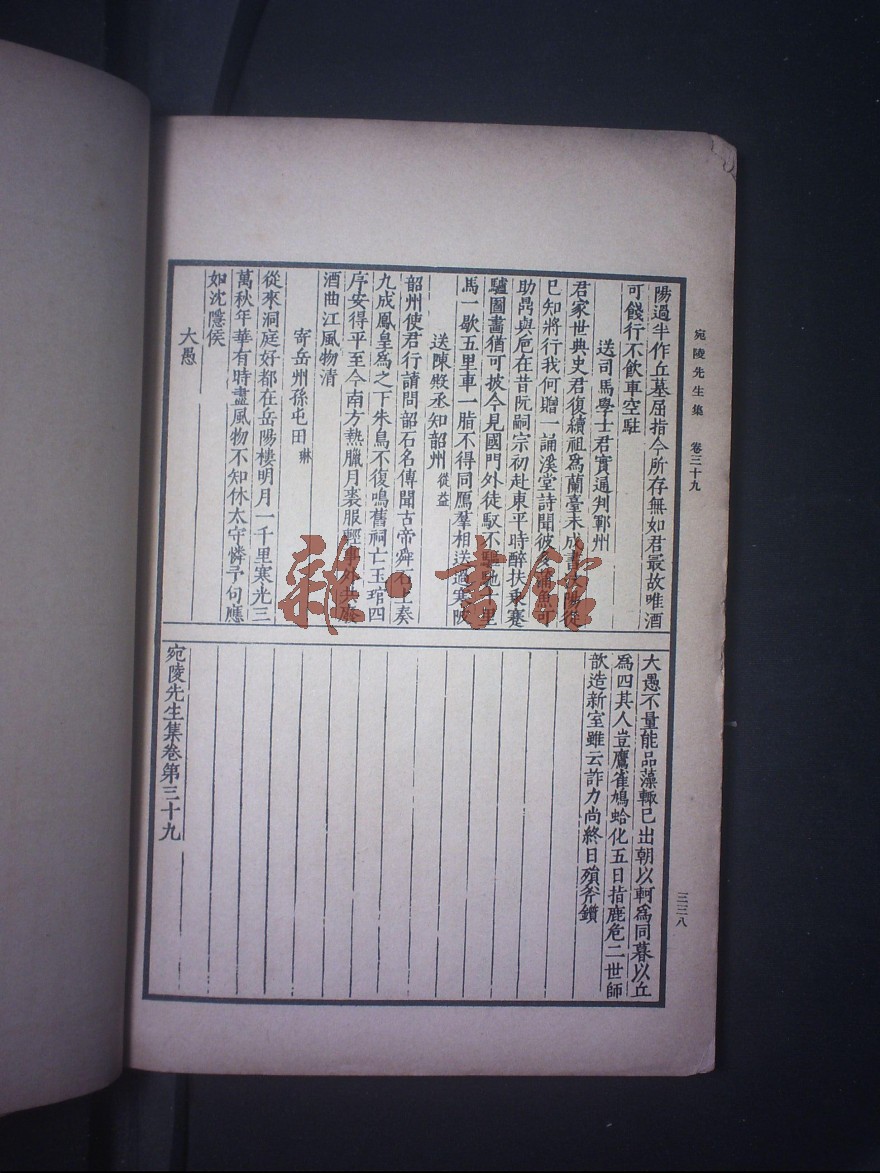 宛陵先生集　卷三十九
三三八
陽過半作丘墓屈指今所存無如君最故唯酒
可餞行不飲車空駐
送司馬學士君實通判鄆州
君家世典史君復續祖爲蘭臺未成書久陽從
已知將行我何贈一誦溪堂詩聞彼多蒲魚可
助鬲與巵在昔阮嗣宗初赴東平時醉扶乘蹇
驢圖畫猶可披今見國門外徒馭不驅馳十里
馬一歇五里車一脂不得同鴈羣相送過寒陂
送陳殿丞知韶州從益
韶州使君行請問韶石名傳聞古帝舜石上奏
九成鳳皇爲之下朱鳥不復鳴舊祠亡玉琯四
序安得平至今南方熱臘月裘服輕
酒曲江風物清
寄岳州孫屯田琳
從來洞庭好都在岳陽樓明月一千里寒光三
萬秋年華有時盡風物不知休太守憐予句應
如沈隱侯
大愚
大愚不量能品藻輙已出朝以軻爲同暮以丘
爲四其人豈鷹雀鳩蛤化五日指鹿危二世師
歆造新室雖云詐力尚終日殞斧鑕
宛陵先生集卷第三十九
雜·書館